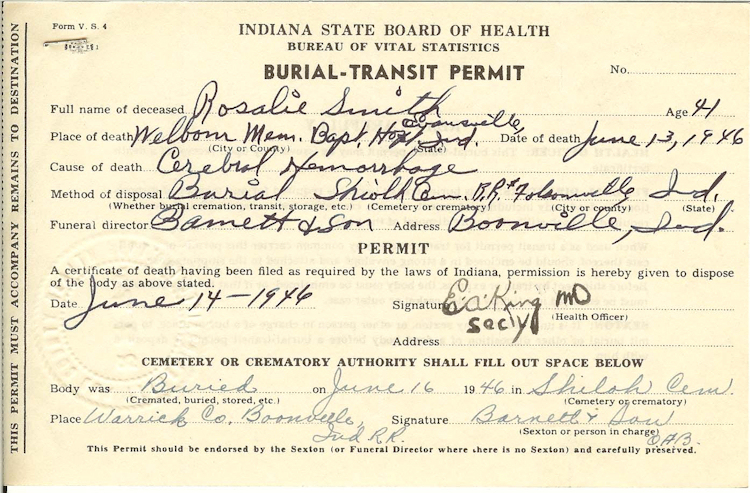 Form V. S. 4
INDIANA STATE BOARD OF HEALTH
BUREAU OF VITAL STATISTICS
BURIAL-TRANSIT PERMIT
No.
Full name of deceased Rosalie Smith Age 41
Place of death Welborn Mem. Bapt. Hosp. Evansville, Ind. Date of death June 13, 1946
(City or County) (State)
Cause of death Cerebral Hemorrhage
Method of disposal Burial Shiloh Cem. R.R.# Folsomville Ind.
(Whether burial, cremation, transit, storage, etc.) (Cemetery or crematory) (City or county) (State)
Funeral director Barnett & Son Address Boonville, Ind.
PERMIT
A certificate of death having been filed as required by the laws of Indiana, permission is hereby given to dispose
of the body as above stated.
Date June 14-1946 Signature E.A. King MD
(Health Officer)
Secy
Address
CEMETERY OR CREMATORY AUTHORITY SHALL FILL OUT SPACE BELOW
Body was Buried on June 16 1946 in Shiloh Cem.
(Cremated, buried, stored, etc.) (Cemetery or crematory)
Place Warrick Co. Boonville, Signature Barnett & Son
Ind R.R. (Sexton or person in charge)
This Permit should be endorsed by the Sexton (or Funeral Director where there is no Sexton) and carefully preserved.
THIS PERMIT MUST ACCOMPANY REMAINS TO DESTINATION